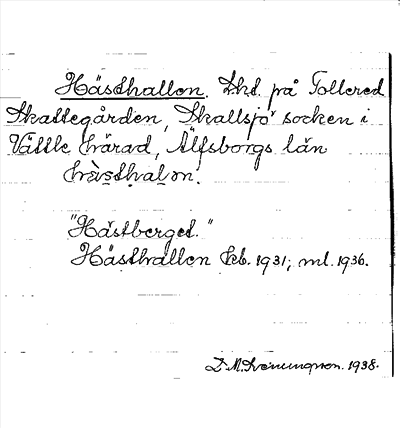 Hästhallen. Skd. på Tollered
Skattegården, Skallsjö socken i
Vättle härad, Älfsborgs län
hàsthalən.
"Hästberget."
Hästhallen Eb. 1931; ml. 1936.
D. M. Svenungsson. 1938.